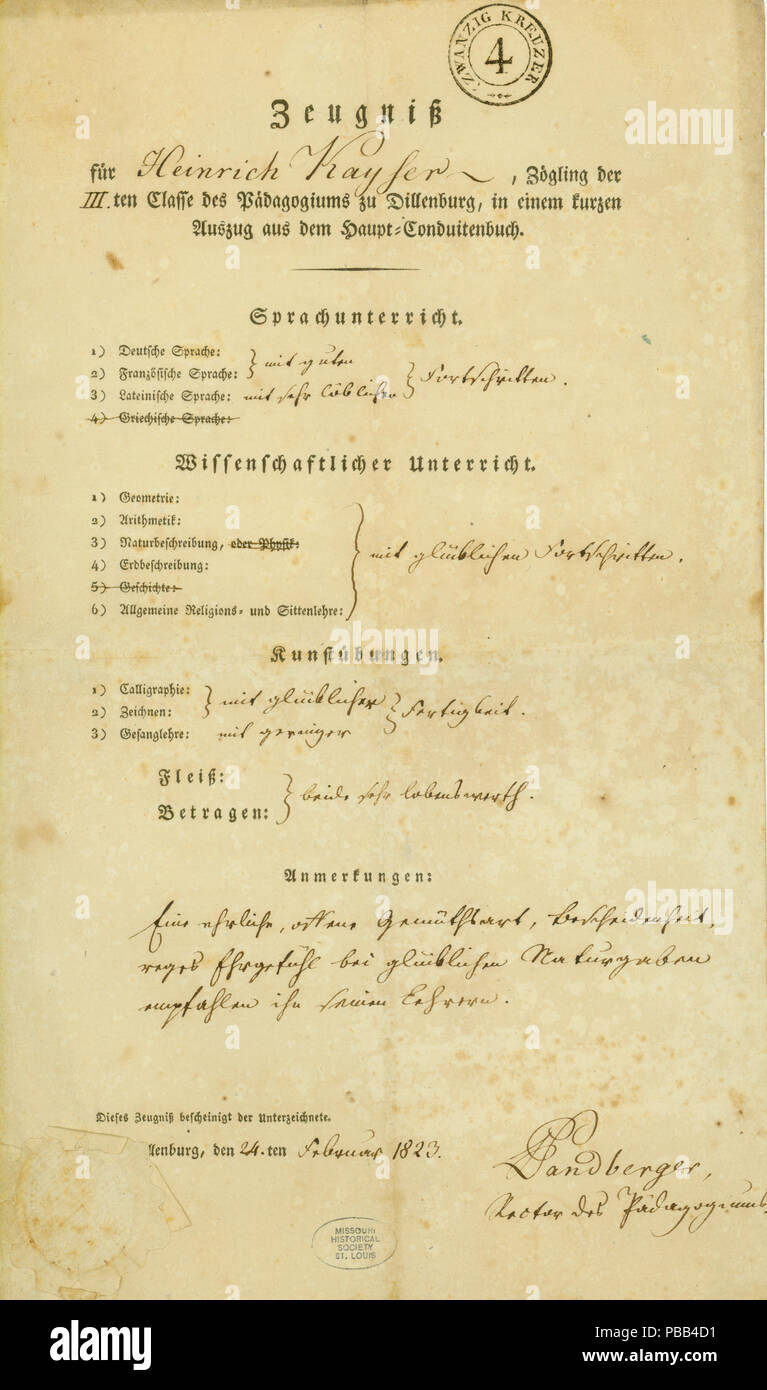 ZWANZIG KREUZER
4
Zeugniß
für Heinrich Kayser, Zögling der
III.ten Classe des Pädagogiums zu Dillenburg, in einem kurzen
Auszug aus dem Haupt=Conduitenbuch.
Sprachunterricht.
1) Deutsche Sprache:
2) Französische Sprache: } mit guten
3) Lateinische Sprache: mit sehr löblichen } Fortschritten.
4) Griechische Sprache:
Wissenschaftlicher Unterricht.
1) Geometrie:
2) Arithmetik:
3) Naturbeschreibung, oder Physik:
4) Erdbeschreibung: } mit glücklichen Fortschritten.
5) Geschichte:
6) Allgemeine Religions= und Sittenlehre:
Kunstübungen.
1) Calligraphie:
2) Zeichnen: } mit glücklicher } Fertigkeit.
3) Gesanglehre: mit geringer
Fleiß:
Betragen: } beide sehr lobenswerth.
Anmerkungen:
Eine ehrliche, offene Gemüthsart, Bescheidenheit,
reges Ehrgefühl bei glücklichen Naturgaben
empfahlen ihn seinen Lehrern.
Dieses Zeugniß bescheinigt der Unterzeichnete.
llenburg, den 24.ten Februar 1823.
Sandberger,
Rector des Pädagogiums.
MISSOURI
HISTORICAL
SOCIETY
ST. LOUIS
alamy
Image ID: PBB4D1
www.alamy.com